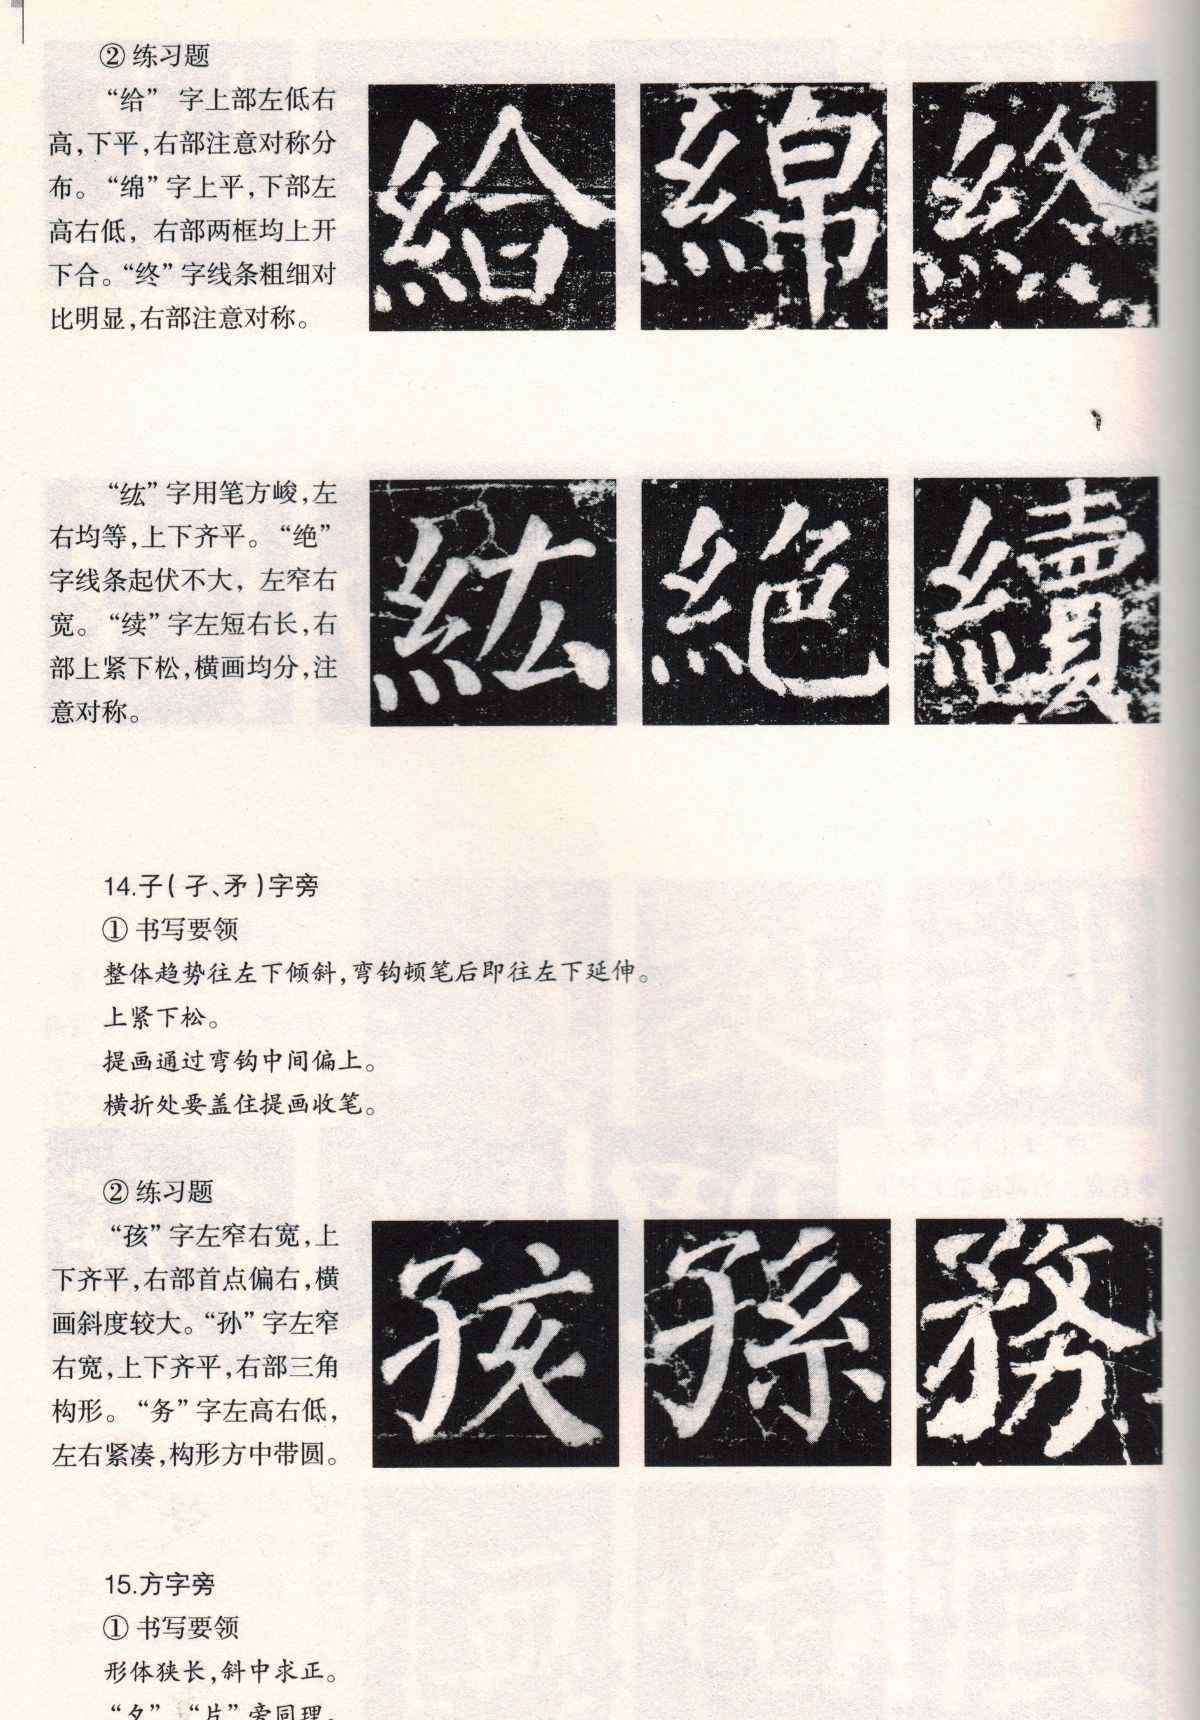 ② 练习题
“给” 字上部左低右
高，下平，右部注意对称分
布。“绵”字上平，下部左
高右低，右部两框均上开
下合。“终”字线条粗细对
比明显，右部注意对称。
給 綿 終
“纮”字用笔方峻，左
右均等，上下齐平。“绝”
字线条起伏不大，左窄右
宽。“续”字左短右长，右
部上紧下松，横画均分，注
意对称。
紘 絶 續
14.子（孑、矛）字旁
① 书写要领
整体趋势往左下倾斜，弯钩顿笔后即往左下延伸。
上紧下松。
提画通过弯钩中间偏上。
横折处要盖住提画收笔。
② 练习题
“孩”字左窄右宽，上
下齐平，右部首点偏右，横
画斜度较大。“孙”字左窄
右宽，上下齐平，右部三角
构形。“务”字左高右低，
左右紧凑，构形方中带圆。
孩 孫 務
15.方字旁
① 书写要领
形体狭长，斜中求正。
“夕”、“片”旁同理。